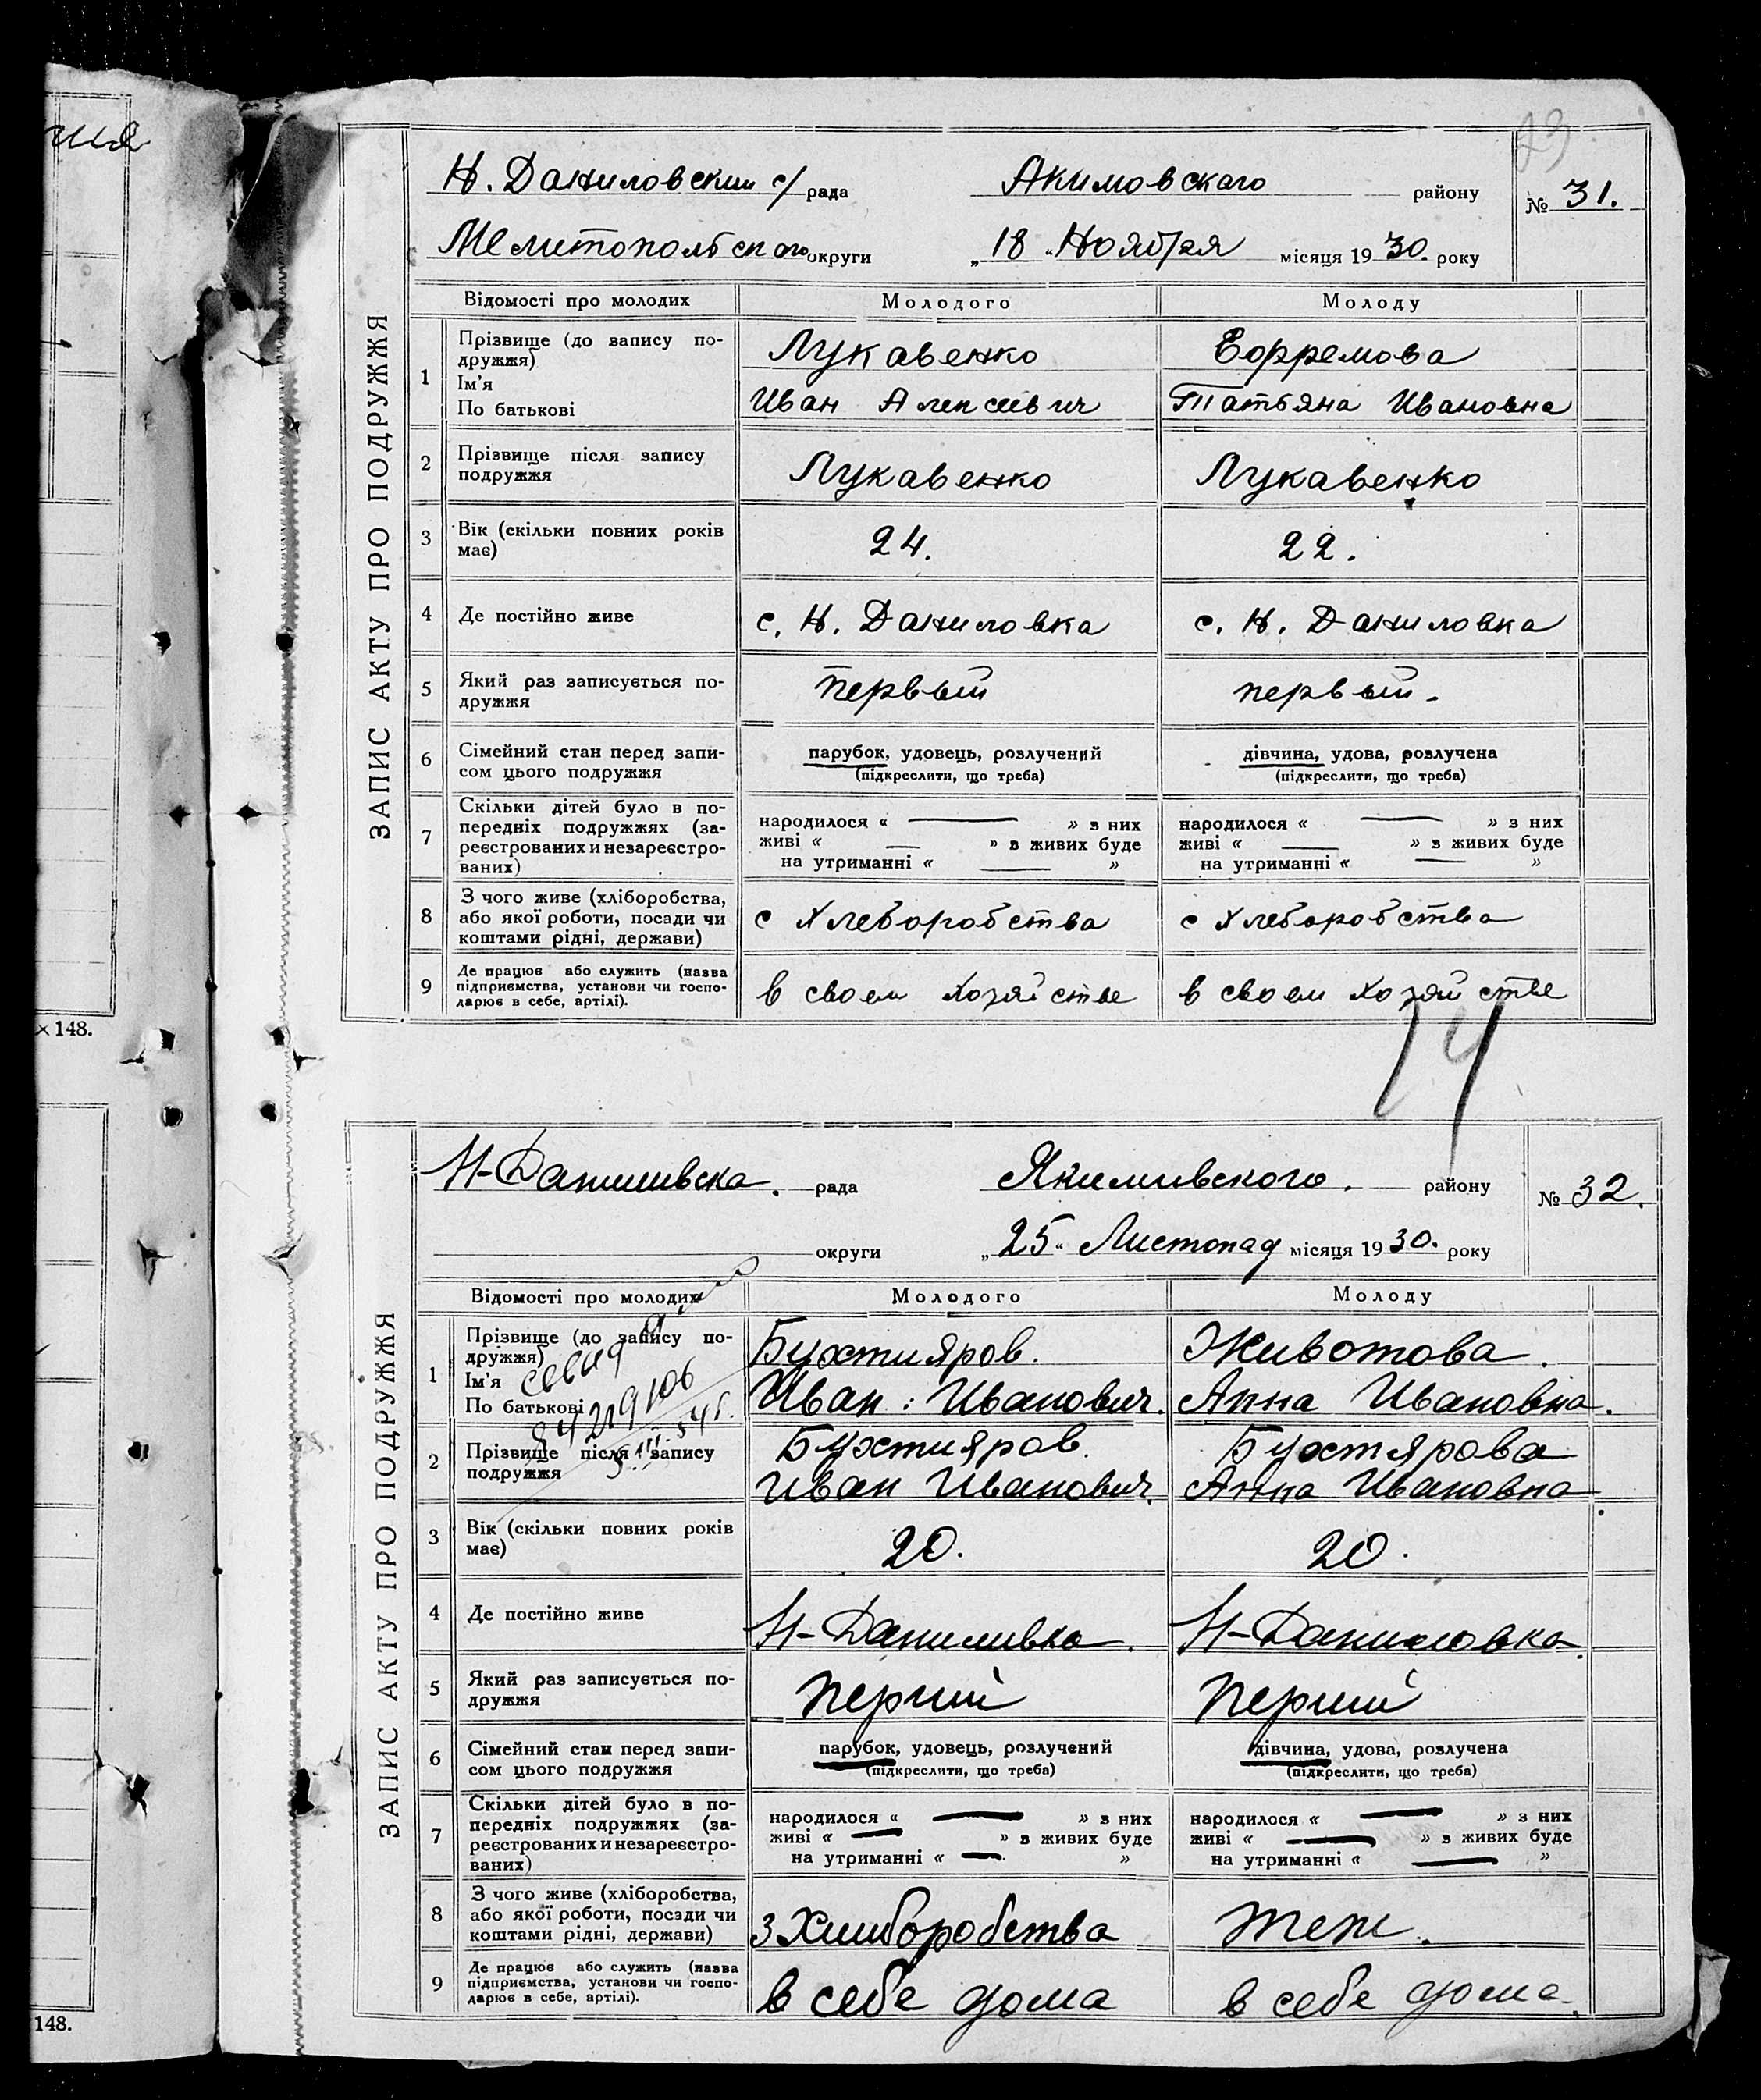 23
ЗАПИС АКТУ ПРО ПОДРУЖЖЯ
Н. Даниловский с/ рада Акимовскаго району № 31.
Мелитопольскаго округи „18" Ноября місяця 1930. року
Відомості про молодих Молодого Молоду
1 Прізвище (до запису по-
дружжя) Лукавенко Ефремова
Ім'я
По батькові Иван Алексеевич Татьяна Ивановна
2 Прізвище після запису
подружжя Лукавенко Лукавенко
3 Вік (скільки повних років
має) 24. 22.
4 Де постійно живе с. Н. Даниловка с. Н. Даниловка
5 Який раз записується по-
дружжя первый первый.
6 Сімейний стан перед запи-
сом цього подружжя
парубок, удовець, розлучений дівчина, удова, розлучена
(підкреслити, що треба) (підкреслити, що треба)
7 Скільки дітей було в по-
передніх подружжях (за-
реєстрованих и незареєстро-
ваних)
народилося « — » з них народилося « — » з них
живі « — » з живих буде живі « — » з живих буде
на утриманні « — » на утриманні « — »
8 З чого живе (хліборобства,
або якої роботи, посади чи
коштами рідні, держави)
с хлеборобства с хлеборобства
9 Де працює або служить (назва
підприємства, установи чи госпо-
дарює в себе, артілі).
в своем хозяйстве в своем хозяйстве
×148.
14
ЗАПИС АКТУ ПРО ПОДРУЖЖЯ
Н-Данилівска. рада Якимівского. району № 32.
округи „25" Листопад місяця 1930. року
Відомості про молодих Молодого Молоду
1 Прізвище (до запису по-
дружжя) Бухтияров. Животова.
Ім'я
По батькові Иван: Иванович. Анна Ивановна.
2 Прізвище після запису
подружжя
Бухтияров. Бухтярова
Иван Иванович. Анна Ивановна
3 Вік (скільки повних років
має) 20. 20.
4 Де постійно живе Н-Данилівка. Н-Даниловка.
5 Який раз записується по-
дружжя перший перший
6 Сімейний стан перед запи-
сом цього подружжя
парубок, удовець, розлучений дівчина, удова, розлучена
(підкреслити, що треба) (підкреслити, що треба)
7 Скільки дітей було в по-
передніх подружжях (за-
реєстрованих и незареєстро-
ваних)
народилося « — » з них народилося « — » з них
живі « — » з живих буде живі « — » з живих буде
на утриманні « — » на утриманні « — »
8 З чого живе (хліборобства,
або якої роботи, посади чи
коштами рідні, держави)
З Хліборобства теж.
9 Де працює або служить (назва
підприємства, установи чи госпо-
дарює в себе, артілі).
в себе дома в себе дома.
148.